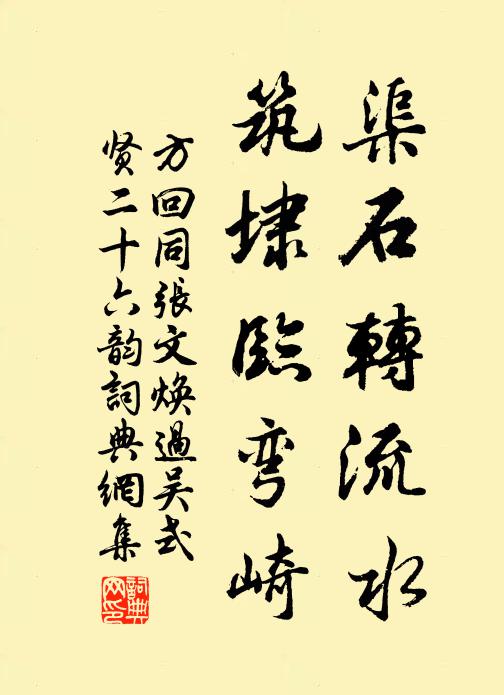 渠石轉流水
筑埭臨弯崎
方回同張文焕過吴式
贤二十六韵詞典網集
詞典網印